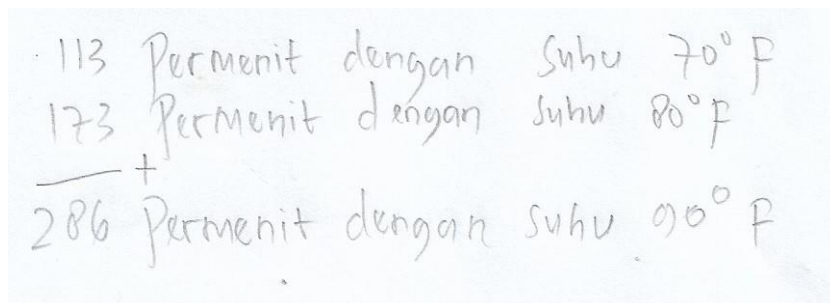 113 Permenit dengan suhu 70° F
173 Permenit dengan suhu 80° F
+
286 Permenit dengan suhu 90° F